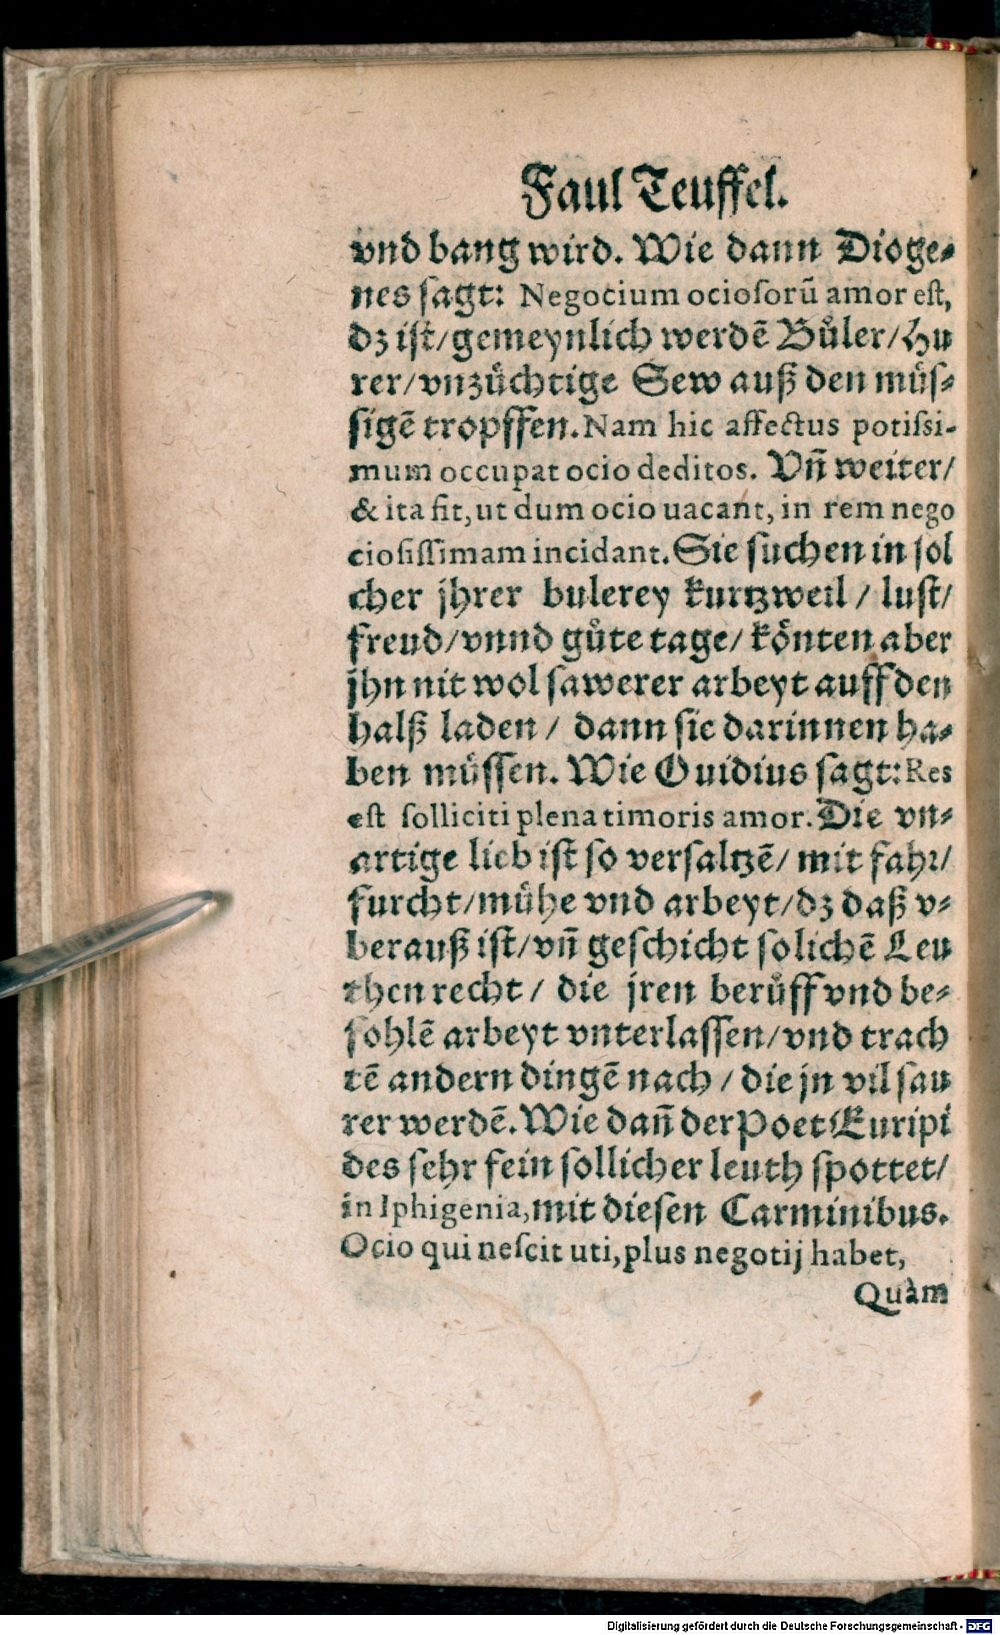 Faul Teuffel.
vnd bang wird. Wie dann Dioge⸗
nes sagt: Negocium ociosorū amor est,
dz ist/gemeynlich werdē Bůler/Hu
rer/vnzůchtige Sew auß den můs⸗
sigē tropffen. Nam hic affectus potissi-
mum occupat ocio deditos. Vñ weiter/
& ita fit, ut dum ocio uacant, in rem nego
ciosissimam incidant. Sie suchen in sol
cher jhrer bulerey kurtzweil / lust/
freud/vnnd gůte tage/ kônten aber
jhn nit wol sawerer arbeyt auff den
halß laden / dann sie darinnen ha⸗
ben můssen. Wie Ouidius sagt: Res
est solliciti plena timoris amor. Die vn⸗
artige lieb ist so versaltzē/ mit fahr/
furcht/mühe vnd arbeyt/dz daß v⸗
berauß ist/vñ geschicht solichē Leu
then recht / die jren berůff vnd be⸗
fohlē arbeyt vnterlassen/vnd trach
tē andern dingē nach / die jn vil sau
rer werdē. Wie dañ der Poet Euripi
des sehr fein sollicher leuth spottet/
in Iphigenia, mit diesen Carminibus.
Ocio qui nescit uti, plus negotij habet,
Quàm
Digitalisierung gefördert durch die Deutsche Forschungsgemeinschaft - DFG